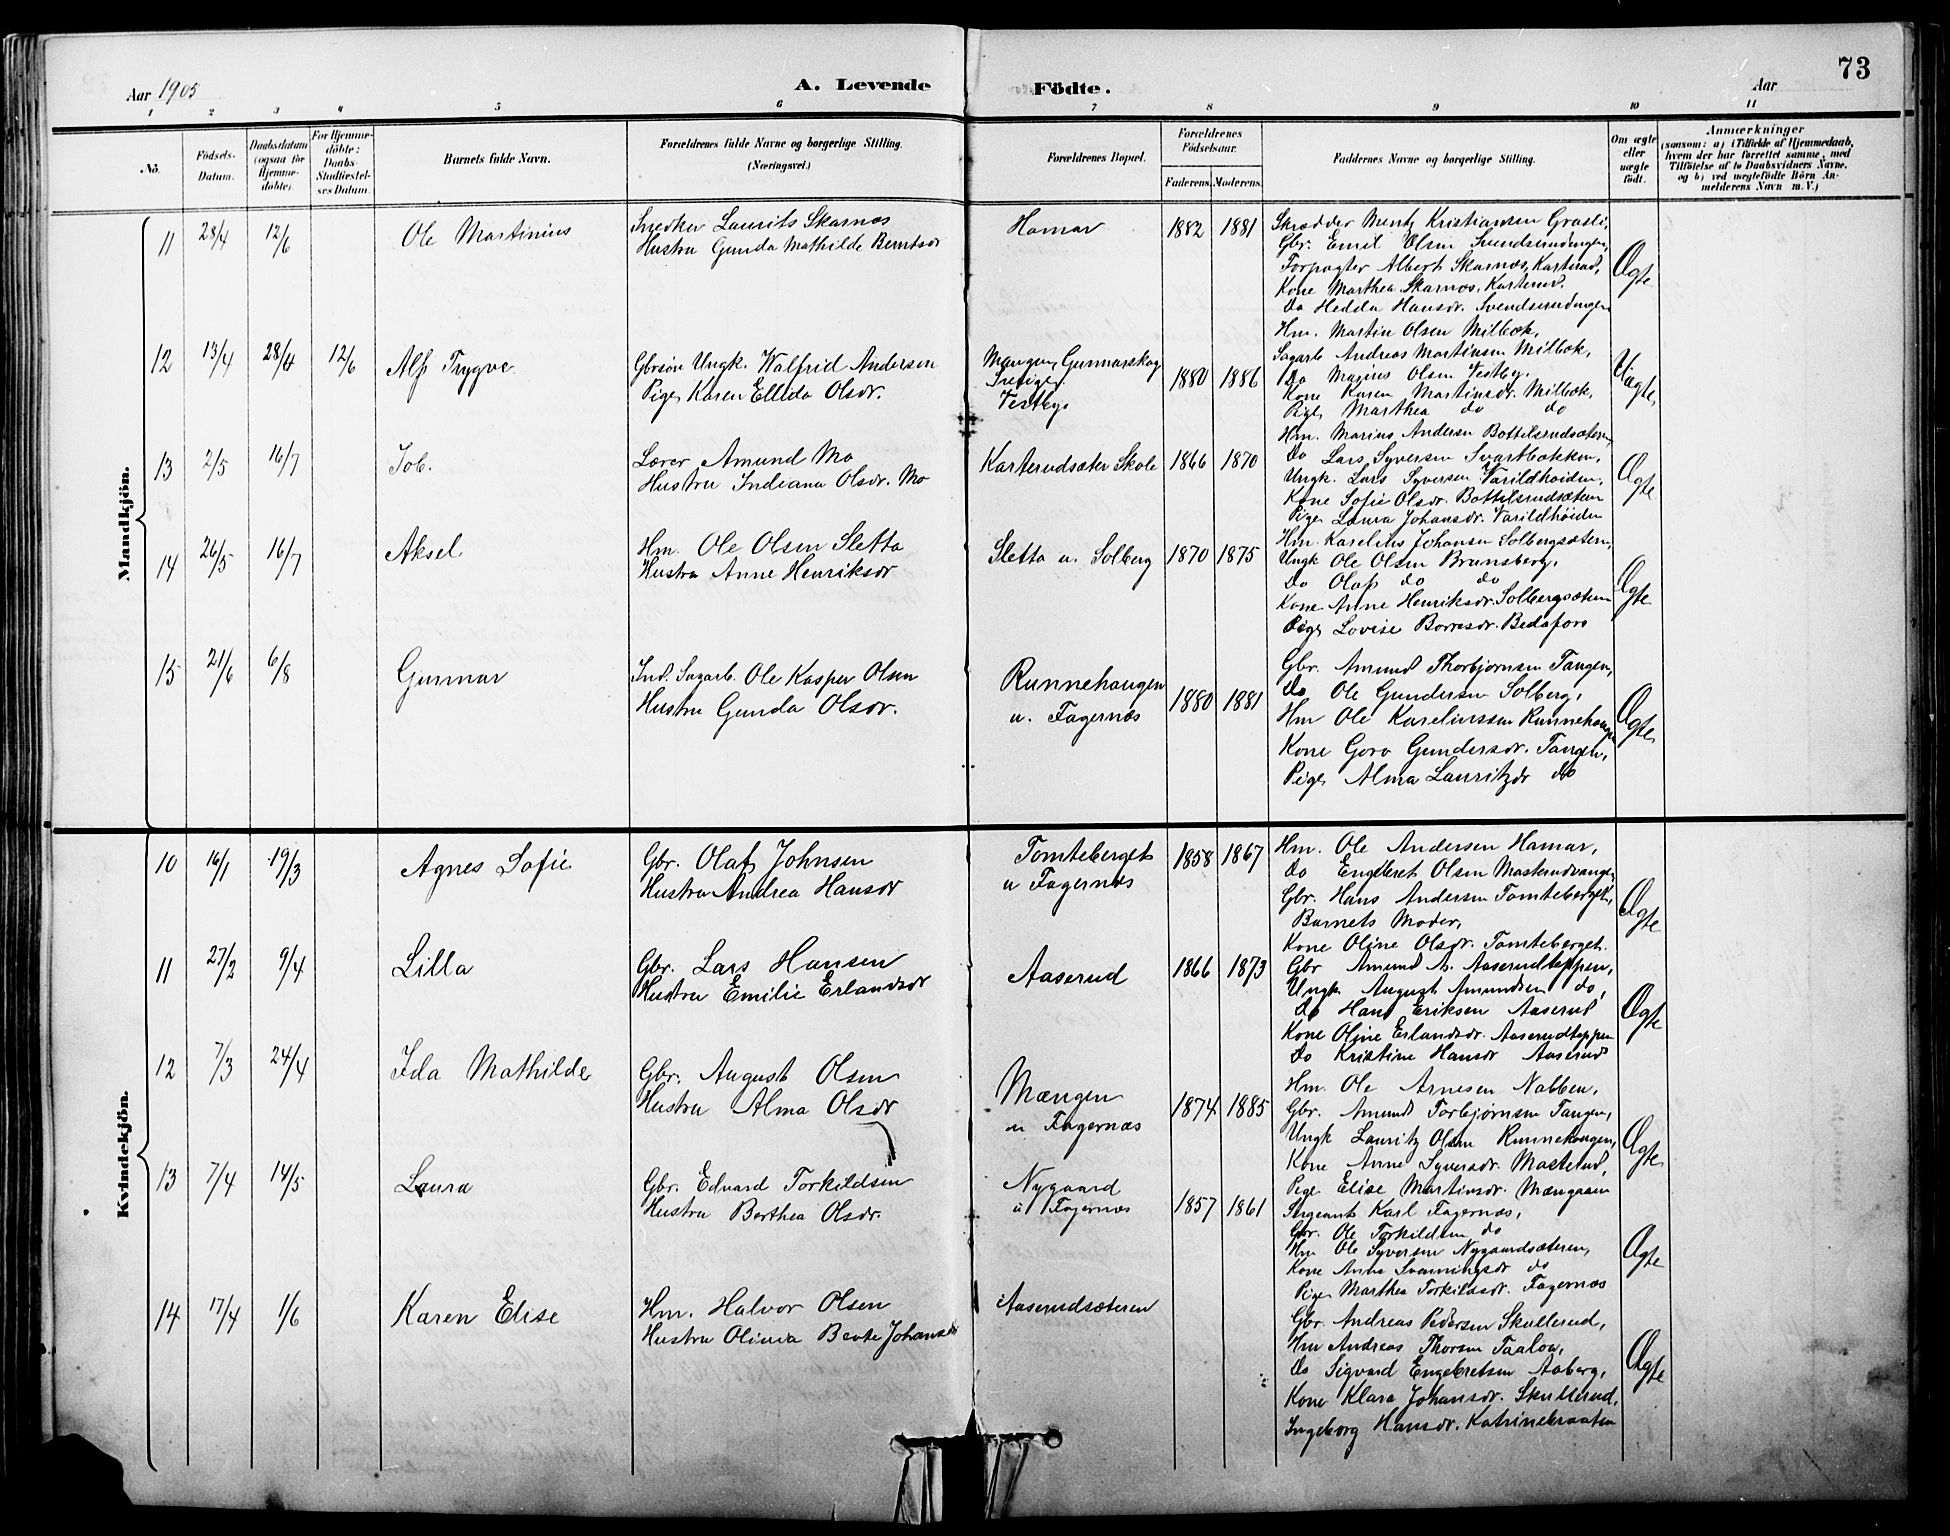 73
Aar 1905
A. Levende
Födte.
Aar
1 2 3 4 5 6 7 8 9 10 11
No.
Födsels-Datum.
Daabsdatum (ogsaa for Hjemme-döbte).
For Hjemme-döbte: Daabs-Stadfæstel-ses Datum.
Barnets fulde Navn.
Forældrenes fulde Navne og borgerlige Stilling. (Næringsvei.)
Forældrenes Bopæl.
Forældrenes Födselsaar.
Faderens. Moderens.
Faddernes Navne og borgerlige Stilling.
Om ægte eller uægte födt.
Anmærkninger
(saasom: a) i Tilfælde af Hjemmedaab, hvem der har forrettet samme, med Tilföielse af to Daabsvidners Navne, og b) ved uægtefödte Börn An-melderens Navn m. V.)
Mandkjön.
11 28/4 12/6 Ole Martinius
Snedker Laurits Skarnæs
Hustru Gunda Mathilde Berntsdr
Hamar 1882 1881
Skrædder Mentz Kristiansen Graasli,
Gbr. Emil Olsen Svendserudengen,
Forpagter Albert Skarnæs, Karterud,
Kone Marthea Skarnæs, Karterud.
Do Hedda Hansdr. Svendserudengen
Ægte
12 13/4 28/4 12/6 Alf Trygve
Gbrsøn Ungk. Walfrid Andersen
Pige Karen Ellida Olsdr.
Mangen, Gunnarskog
Sverige.
Vestby
1880 1886
Hm. Martin Olsen Milbæk,
Sagarb. Andreas Martinsen Milbæk,
Do Marius Olsen Vestby.
Kone Karen Martinsdr. Milbæk,
Pige Marthea do do
Uægte
13 2/5 16/7 Job.
Lærer Amund Mo
Hustru Indiana Olsdr. Mo
Karterudsæter Skole 1866 1870
Hm. Marius Andersen Bottilsrudsæteren,
Do Lars Syversen Svartbækken,
Ungk. Lars Syversen Varildhøiden,
Kone Sofie Olsdr. Bottilsrudsæteren
Pige Laura Johansdr. Varildhøiden
Ægte
14 26/5 16/7 Aksel
Hm. Ole Olsen Sletta
Hustru Anne Henriksdr
Sletta u. Solberg 1870 1875
Hm. Karelius Johansen Solbergsæteren,
Ungk Ole Olsen Brunsberg,
Do Olaf do do
Kone Anne Henriksdr. Solbergsæteren
Pige Lovise Borresdr. Bedafors
Ægte
15 21/6 6/8 Gunnar
Ind. Sagarb. Ole Kasper Olsen
Hustru Gunda Olsdr.
Runnehaugen
u. Fagernæs
1880 1881
Gbr. Amund Thorbjørnsen Tangen,
Do Ole Gundersen Solberg,
Hm Ole Kareliussen Runnehaugen
Kone Gora Gundersdr. Tangen,
Pige Alma Lauritzdr do
Ægte
Kvindekjön.
10 16/1 19/3 Agnes Sofie
Gbr. Olaf Johnsen
Hustru Andrea Hansdr
Tomteberget
u Fagernæs
1858 1867
Hm. Ole Andersen Hamar,
Do Engebret Olsen Masterudvangen
Gbr. Hans Andersen Tomteberget,
Barnets Moder,
Kone Oline Olsdr. Tomteberget.
Ægte
11 27/2 9/4 Lilla
Gbr. Lars Hansen
Hustru Emilie Erlandsdr
Aaserud 1866 1873
Gbr Amund A. Aaserudtoppen,
Ungk. August Amundsen do,
Do Hans Eriksen Aaserud
Kone Oline Erlandsdr. Aaserudtoppen
Do Kristine Hansdr Aaserud
Ægte
12 7/3 24/4 Ida Mathilde
Gbr. August Olsen
Hustru Alma Olsdr
Mængen
u Fagernæs
1874 1885
Hm. Ole Arnesen Nabben,
Gbr. Amund Torbjørnsen Tangen,
Ungk Lauritz Olsen Runnehaugen,
Kone Anne Syversdr. Masterud,
Pige Elise Martinsdr. Mængaaen
Ægte
13 7/4 14/5 Laura
Gbr. Edvard Torkildsen
Hustru Berthea Olsdr.
Nygaard
u Fagernæs
1857 1861
Sergeant Karl Fagernæs,
Gbr. Ole Torkildsen do
Hm Ole Syversen Nygaardsæteren,
Kone Anna Svenningsdr do
Pige Marthea Torkildsdr. Fagernæs
Ægte
14 17/4 1/6 Karen Elise
Hm. Halvor Olsen
Hustru Olivia Beate Johansdr
Aaserudsæteren
Gbr. Andreas Pedersen Skullerud,
Hm Andreas Thorsen Taaloa,
Do Sigvard Engebretsen Aaberg,
Kone Klara Johansdr. Skullerud,
Ingeborg Hansdr. Katrinebraaten
Ægte